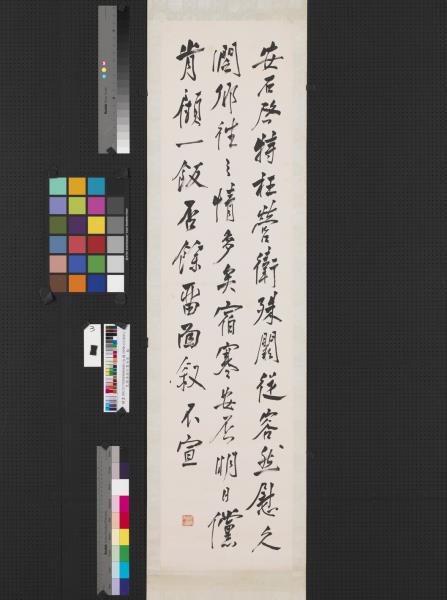 安石啓特枉營衛殊闕從容然慰久
闊鄉往之情多矣宿寒安否明日儻
肯顧一飯否餘留面叙不宣
3